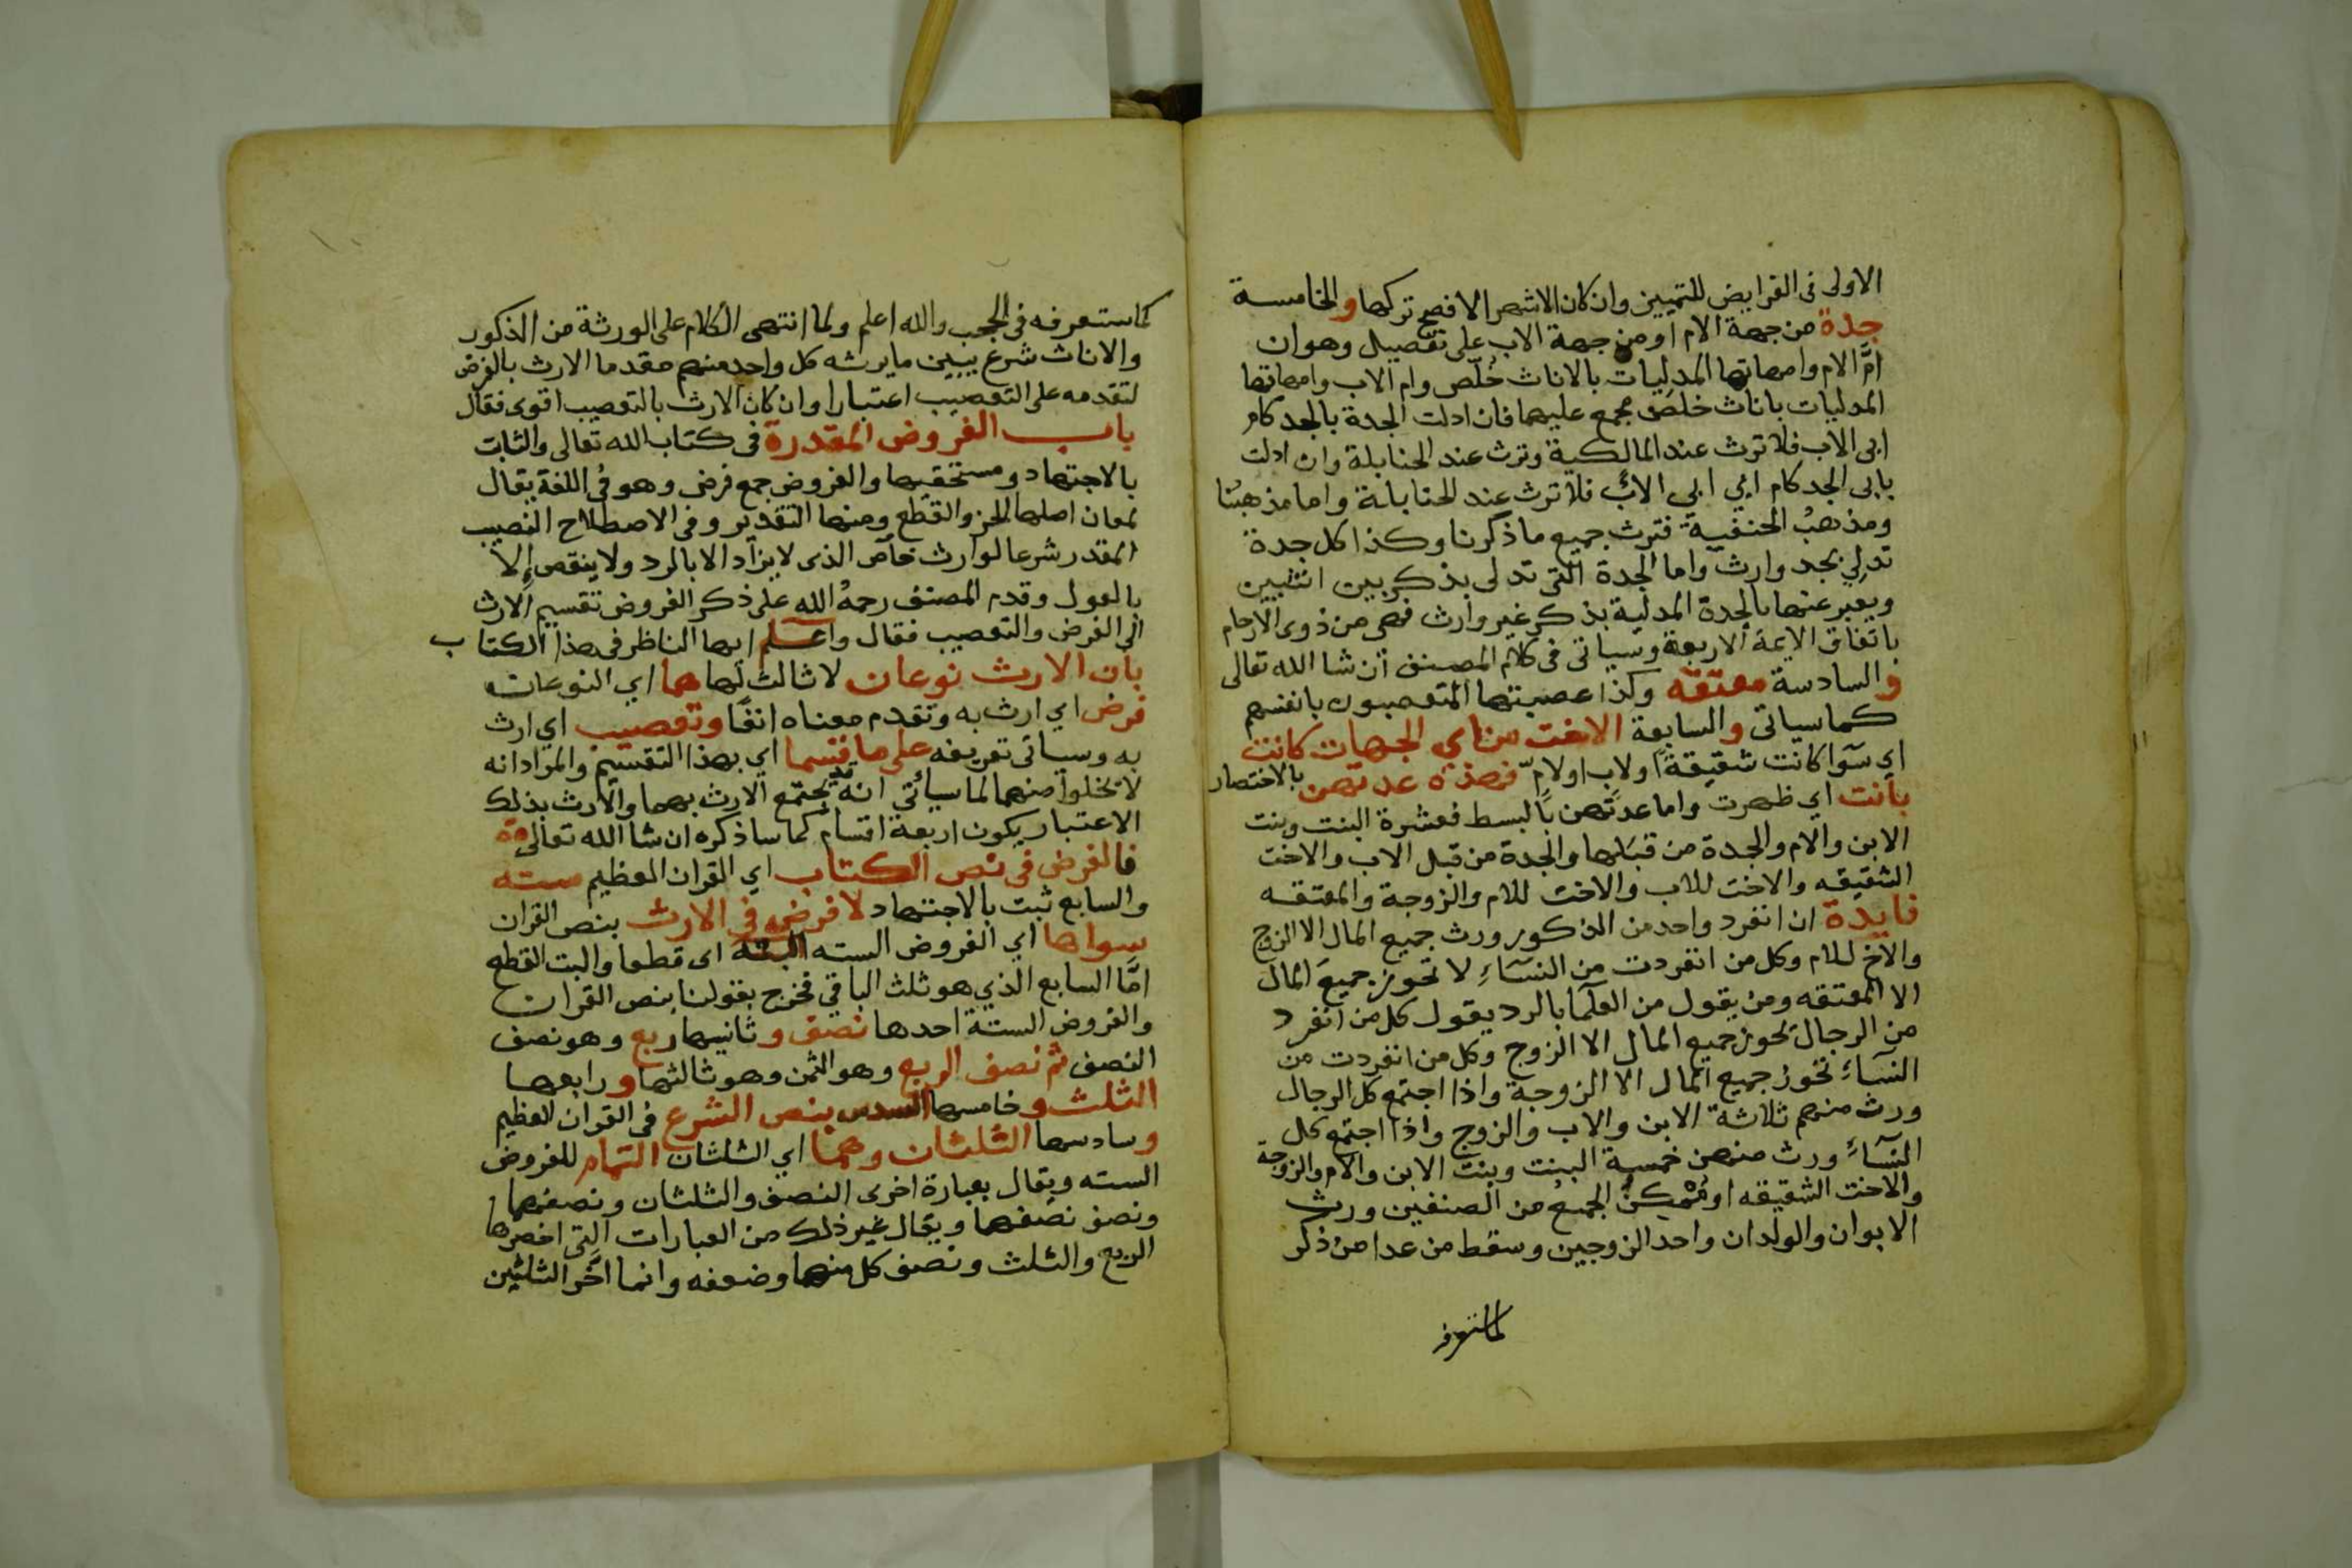 الاولى فى الفرايض للتمييز وان كان الاشهر الافصح تركها والخامسة
جدة من جهة الام او من جهة الاب على تفصيل وهو ان
امَّ الام وامهاتها المدليات بالاناث خُلّص وام الاب وامهاتها
المدليات باناث خلص مجمع عليهما فان ادلت الجدة بالجد كام
ابى الاب فلا ترث عند المالكية وترث عند الحنابلة وان ادلت
بابى الجد كام ابي ابي الاب فلا ترث عند الحنابلة واما مذهبُنا
ومذهبُ الحنفية فترث جميع ما ذكرنا وكذا كل جدة
تدلي بجد وارث واما الجدة التى تدلى بذكر بين انثيين
ويعبر عنها بالجدة المدلية بذكر غير وارث فهى من ذوى الارحام
باتفاق الايمة الاربعة وسياتى فى كلام المصنف ان شا الله تعالى
والسادسة معتقه وكذا عصبتها المتعصبون بانفسهم
كما سياتى والسابعة الاخت من اي الجهات كانت
اي سوآ كانت شقيقةً او لاب او لامّ فهذه عدتهن بالاختصار
بانت اي ظهرت واما عدتهن بالبسط فعشرة البنت وبنت
الابن والام والجدة من قبلها والجدة من قبل الاب والاخت
الشقيقه والاخت للاب والاخت للام والزوجة والمعتقه
فايدة ان انفرد واحد من الذكور ورث جميع المال الا الزوج
والاخ للام وكل من انفردت من النسآءِ لا تحوز جميعَ المال
الا المعتقه ومن يقول من العلمآ بالرد يقول كل من انفرد
من الرجال يحوز جميع المال الا الزوج وكل من انفردت من
النسآء تحوز جميع المال الا الزوجة واذا اجتمع كل الرجال
ورث منهم ثلاثة الابن والاب والزوج واذا اجتمع كل
النسآء ورث منهن خمسة البنت وبنت الابن والام والزوجة
والاخت الشقيقه او مُمْكِنُ الجمعُ من الصنفين ورث
الابوان والولدان واحد الزوجين وسقط من عدا من ذكر
كما ستعرفه
كما ستعرفه فى الحجب والله اعلم ولما انتهى الكلام على الورثة من الذكور
والاناث شرع يبين ما يرثه كل واحد منهم مقدما الارث بالفرض
لتقدمه على التعصيب اعتبارا وان كان الارث بالتعصيب اقوى فقال
باب الفروض المقدرة فى كتاب الله تعالى والثابت
بالاجتهاد ومستحقيها والفروض جمع فرض وهو فى اللغة يقال
لمعان اصلها الحز والقطع ومنها التقدير وفى الاصطلاح النصيب
المقدر شرعا لوارث خاص الذى لا يزاد الا بالرد ولا ينقص إلا
بالعول وقدم المصنف رحمهُ الله على ذكر الفروض تقسيم الارث
الى الفرض والتعصيب فقال واعلم ايها الناظر فى هذا الكتاب
بان الارث نوعان لا ثالث لها هما اي النوعان
فرض اي ارث به وتقدم معناه انفًا وتعصيب اي ارث
به وسياتى تعريفه على ما قسما اي بهذا التقسيم والمراد انه
لا تخلوا منهما لما سيأتي انه قد يجتمع الارث بهما والارث بذلك
الاعتبار يكون اربعة اقسام كما ساذكره ان شا الله تعالى
فالفرض فى نص الكتاب اي القران العظيم سته
والسابع ثبت بالاجتهاد لا فرض فى الارث بنص القران
سواها اي الفروض السته البته اى قطعا والبت القطع
امَّا السابع الذي هو ثلث الباقي فخرج بقولنا بنص القران
والفروض الستة احدها نصف وثانيها ربع وهو نصف
النصف ثم نصف الربع وهو الثمن وهو ثالثها ورابعها
الثلث وخامسها السدس بنص الشرع فى القران العظيم
وسادسها الثلثان وهما اي الثلثان التمام للفروض
السته ويقال بعبارة اخرى النصف والثلثان ونصفهما
ونصف نصفهما ويقال غير ذلك من العبارات التى اخصرها
الربع والثلث ونصف كل منهما وضعفه وانما اخَّر الثلثين